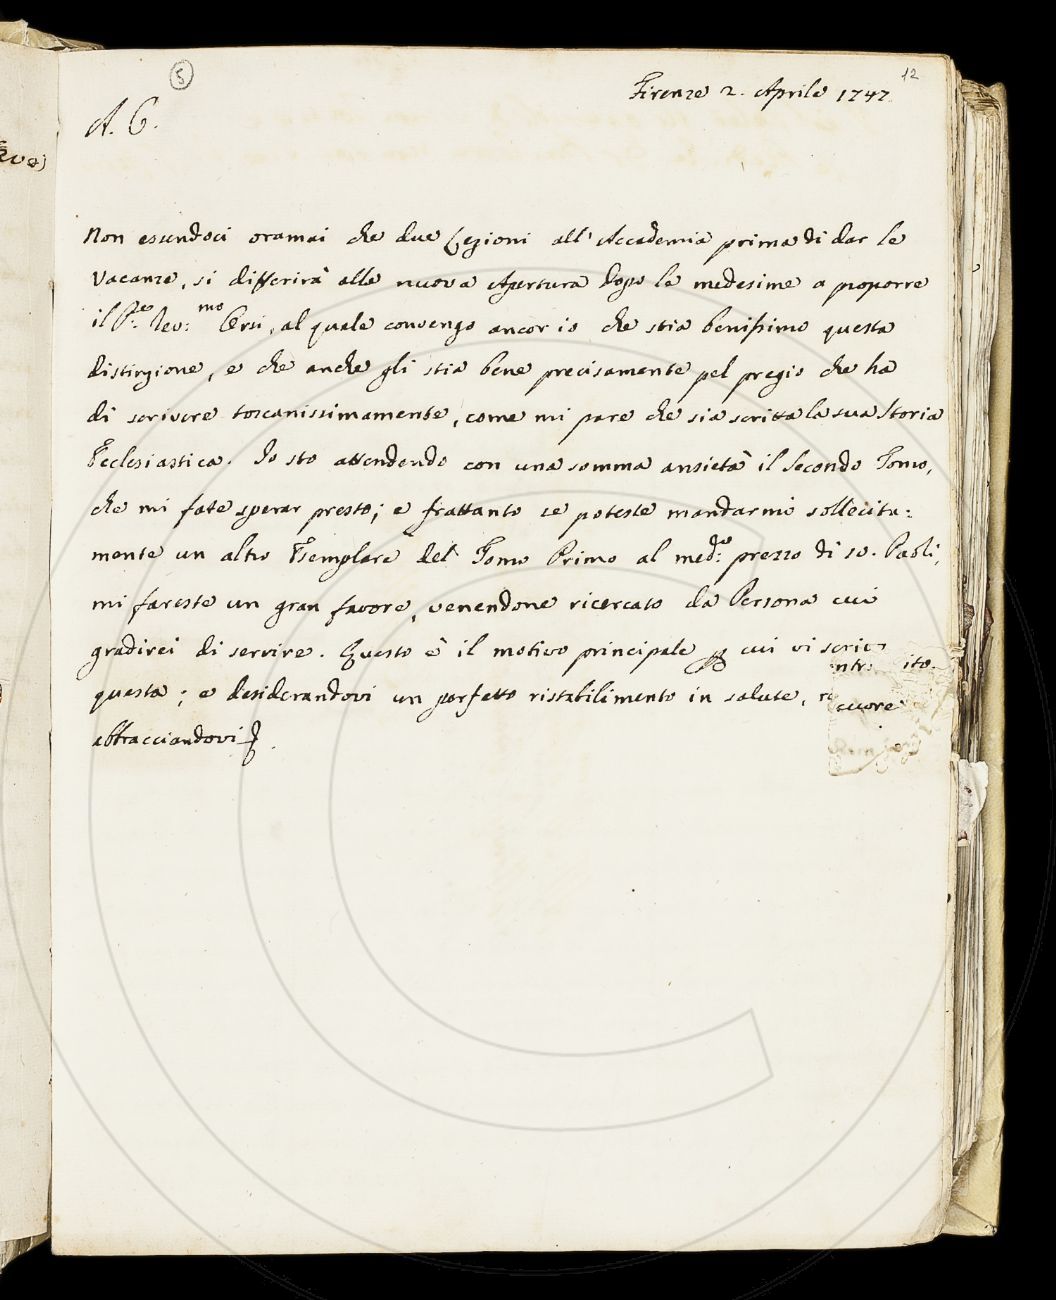 5
12
Firenze 2. Aprile 1747.
A. C.
Non essendoci oramai che due Lezioni all' Accademia prima di dar le
Vacanze, si differirà alla nuova Apertura dopo le medesime a proporre
il P.re Rev:mo Orsi, al quale convengo ancor io che stia benissimo questa
distinzione, e che anche gli stia bene precisamente pel pregio che ha
di scrivere toscanissimamente, come mi pare che sia scritta la sua Storia
Ecclesiastica. Io sto attendendo con una somma ansietà il Secondo Tomo,
che mi fate sperar presto; e frattanto se poteste mandarmi sollecita:
mente un altro Esemplare del Tomo Primo al med:o prezzo di 10. Paoli,
mi fareste un gran favore, venendone ricercato da Persona cui
gradirei di servire. Questo è il motivo principale per cui vi
questa; e desiderandovi un perfetto ristabilimento in salute,
cuore
abbracciandovi